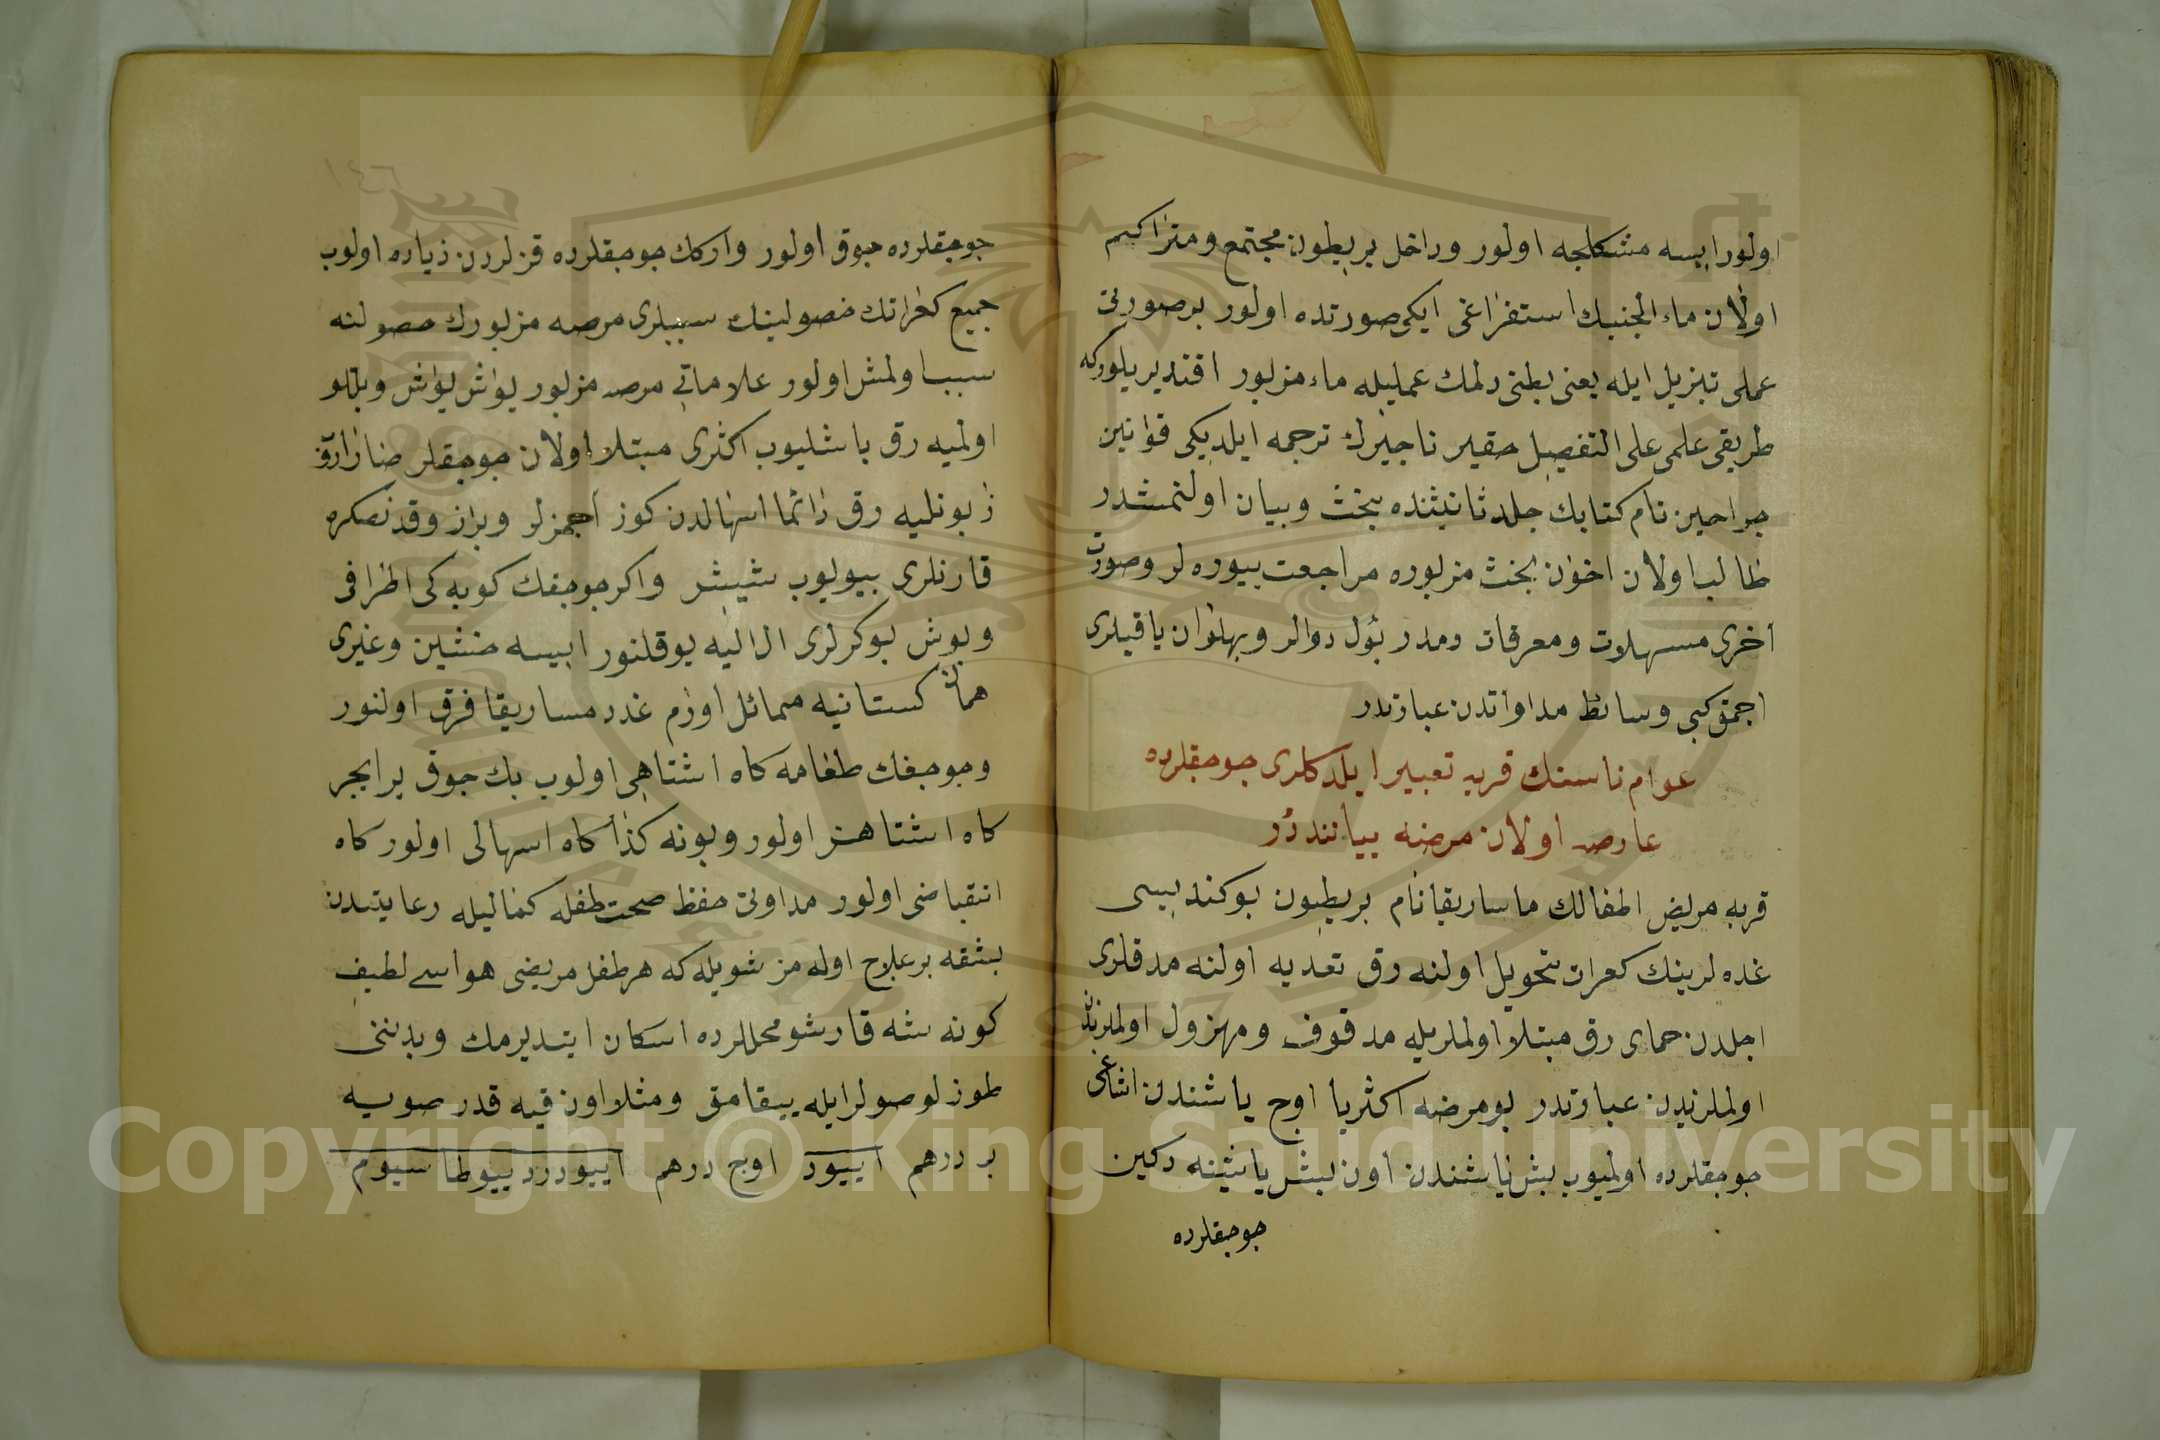 اولور ایسه مشکلجه اولور وداخل بریطون مجتمع ومتراکم
اولان ماء الجنبك استفراغی ایکی صورتده اولور بر صورتی
عملی تبزیل ایله یعنی بطنی دلمك عملیله ماء مزبور اقتدیریلورکه
طریقی علمی علی التفصیل حقیر ناچیزك ترجمه ایلدیکی قوانین
جراحین نام کتابك جلد ثانیثنده بحث وبیان اولنمشدر
طالب اولان اخوان بحث مزبوره مراجعت بیوره لر وصورت
اخری مسهلات ومعرقات ومدر بول دوالر وبهلوان یاقیلری
اجمق کبی وسائط مداواتدن عبارتدر
عوام ناسنك قربه تعبیر ایلدکلری جوجقلرده
عارض اولان مرضه بیاننددر
قربه مریض اطفالك ماساریقا نام بریطون بوکندیسی
غده لرینك کعرات تحویل اولنه رق تعدیه اولنه مدقلری
اجلدن حمای رق مبتلا اولملریله مدقوق ومهزول اولملرندن
اولملرندن عبارتدر بو مرضه اکثریا اوج یاشندن اشاغی
جوجقلرده اولمیوب بش یاشندن اون بش یاشینه دکین
جوجقلرده
١٤٦
جوجقلرده جوق اولور وارکك جوجقلرده قزلردن زیاده اولوب
جمیع کعراتك حصولینك سببلری مرضه مزبورك حصولنه
سبب اولمش اولور علاماتی مرض مزبور یواش یواش وبللو
اولمیه رق باشلیوب اکثری مبتلا اولان جوجقلر
زبونلیه رق دائما اسهالدن کوز اجمزلر وبراز وقدنصکره
قارنلری بیویوب شیشر واکر جوجغك کوبه کی اطرافی
وبوش بوکرلری ال ایله یوقلنور ایسه خشین وغیری
همان کستانیه مماثل اوزم غدد مساریقا فرق اولنور
وجوجغك طعامه کاه اشتاهی اولوب بك جوق یر ایجر
کاه اشتاهسز اولور وبونه کذا کاه اسهالی اولور کاه
انقباضی اولور مداوتی حفظ صحت طفله کمالیله رعایتدن
بشقه بر علاج اوله مز شویله که هر طفل مریضی هواسے لطیف
کونه شه قارشو محللرده اسکان ایتدیرمك وبدننی
طوزلو صولر ایله ییقامق ومثلا اون قیه قدر صویه
بر درهم اییود اوج درهم اییودرد بیوطاسیوم